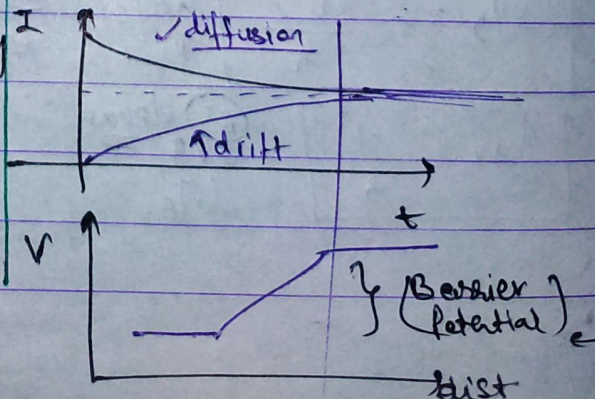 I
✓ diffusion
↑drift
t
V
(Barrier
Potential)
dist